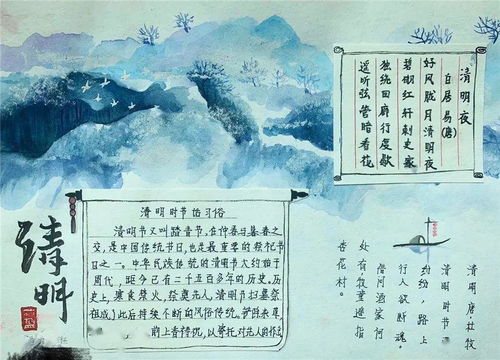 清明夜
白居易(唐)
好风胧月清明夜
碧砌红轩刺史家
独绕回廊行复歇
遥听弦管暗看花
清明
清明时节的习俗
清明节又叫踏青节,在仲春与暮春之
交,是中国传统节日,也是最重要的祭祀节
日之一。中华民族传统的清明节大约始于
周代,距今已有二千五百多年的历史。历
史上,寒食禁火,祭奠先人,清明节扫墓祭
祖成)此后持续不断的风俗传统。铲除杂
前上香祷祝,以寄托对先人的怀念
清明 唐·杜牧
清明时节
纷纷,路上
行人欲断魂。
借问酒家何
处有牧童遥指
杏花村。